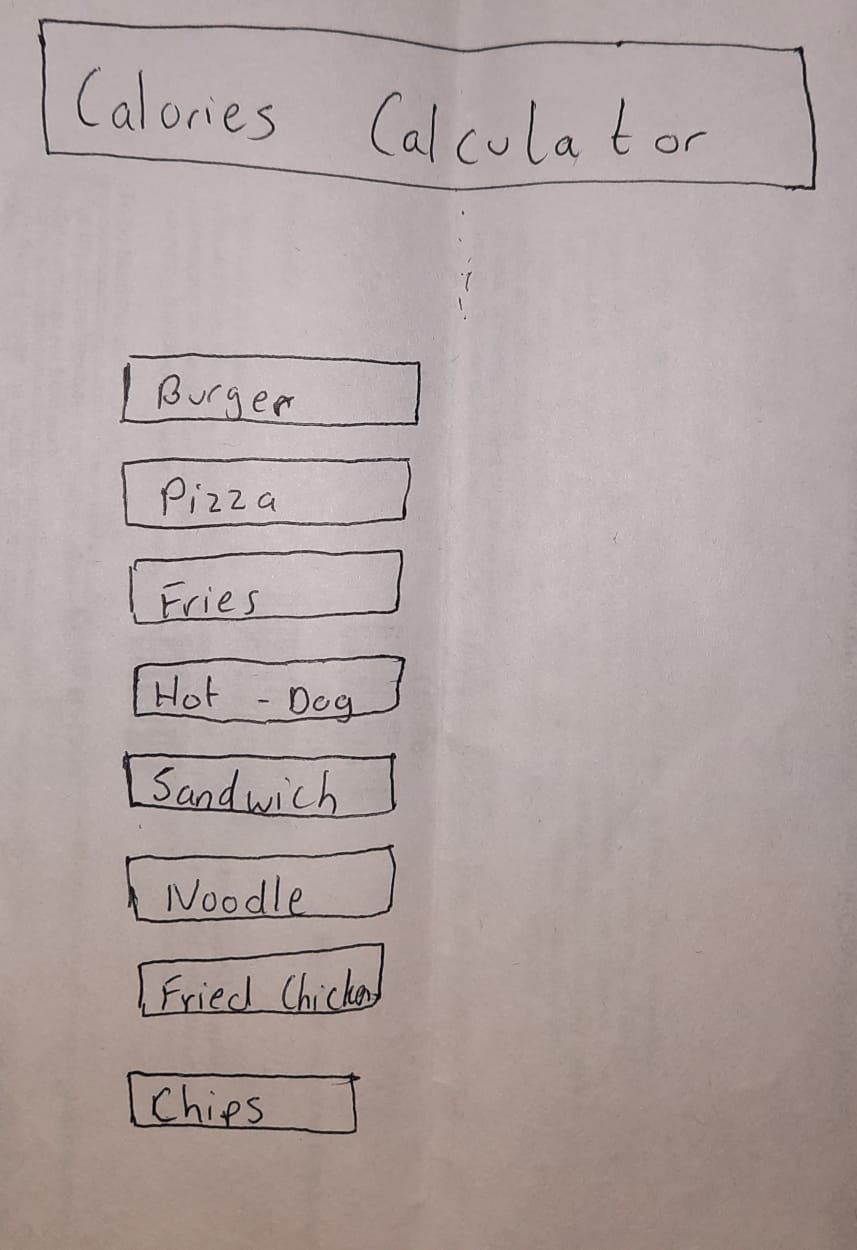 Calories Calculator
Burger
Pizza
Fries
Hot - Dog
Sandwich
Noodle
Fried Chicken
Chips